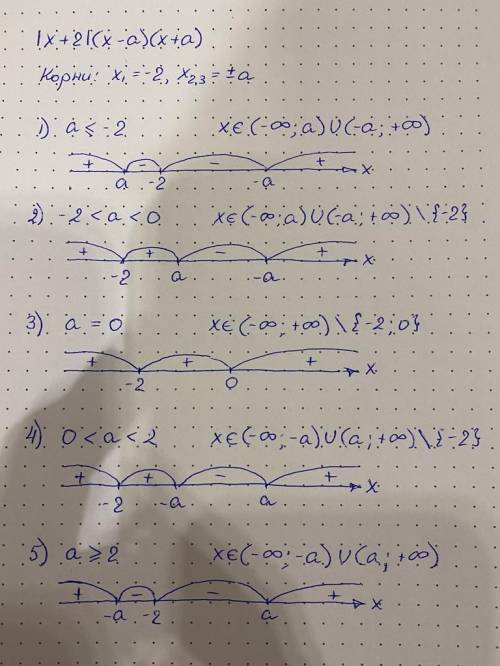 |x+2|(x-a)(x+a)
Корни: x₁=-2, x₂,₃=±a
1) a≤-2 x∈(-∞;a)∪(-a;+∞)
+ - - + x
a -2 -a
2) -2<a<0 x∈(-∞;a)∪(-a;+∞)\{-2}
+ + - + x
-2 a -a
3) a=0 x∈(-∞;+∞)\{-2;0}
+ + + x
-2 0
4) 0<a<2 x∈(-∞;-a)∪(a;+∞)\{-2}
+ + - + x
-2 -a a
5) a≥2 x∈(-∞;-a)∪(a;+∞)
+ - - + x
-a -2 a